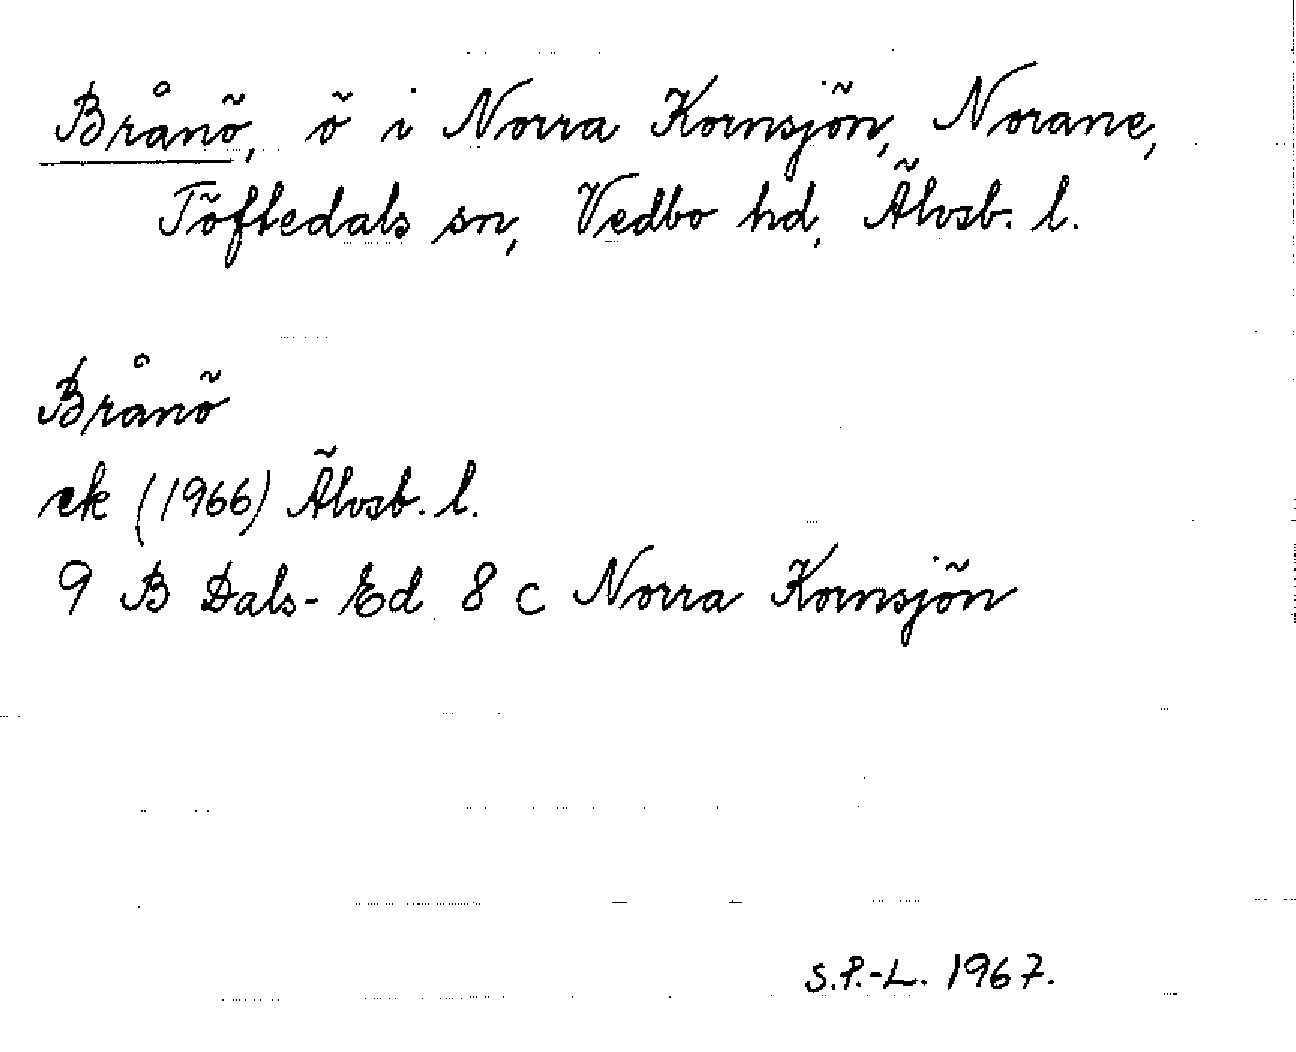 Brånö, ö i Norra Kornsjön, Norane,
Töftedals sn, Vedbo hd, Älvsb. l.
Brånö
ek (1966) Älvsb. l.
9 B Dals-Ed 8 c Norra Kornsjön
S.P.-L. 1967.